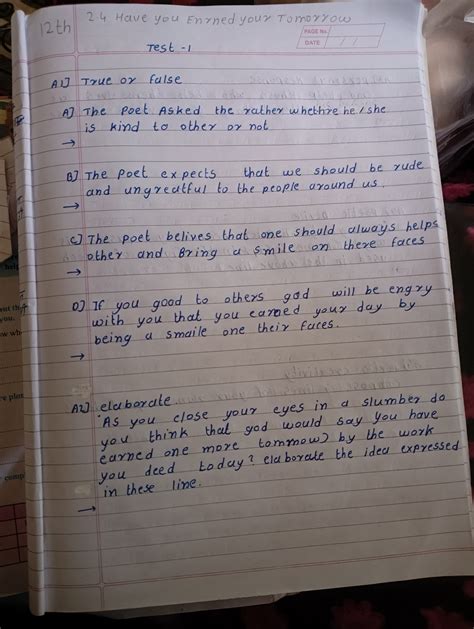 12th
2.4 Have you Enrned your Tomorrow
PAGE No.
DATE / /
Test -1
A1] True or false
A] The Poet Asked the rather whethre he/she
is kind to other or not
→
B] The Poet expects that we should be rude
and ungreatful to the people around us.
→
C] The Poet belives that one should always helps
other and Bring a Smile on there faces
→
D] If you good to others god will be engry
with you that you earned your day by
being a smaile one their faces.
→
A2] elaborate
"As you close your eyes in a slumber do
you think that god would say you have
earned one more tommow) by the work
you deed today? elaborate the idea expressed
in these line.
→